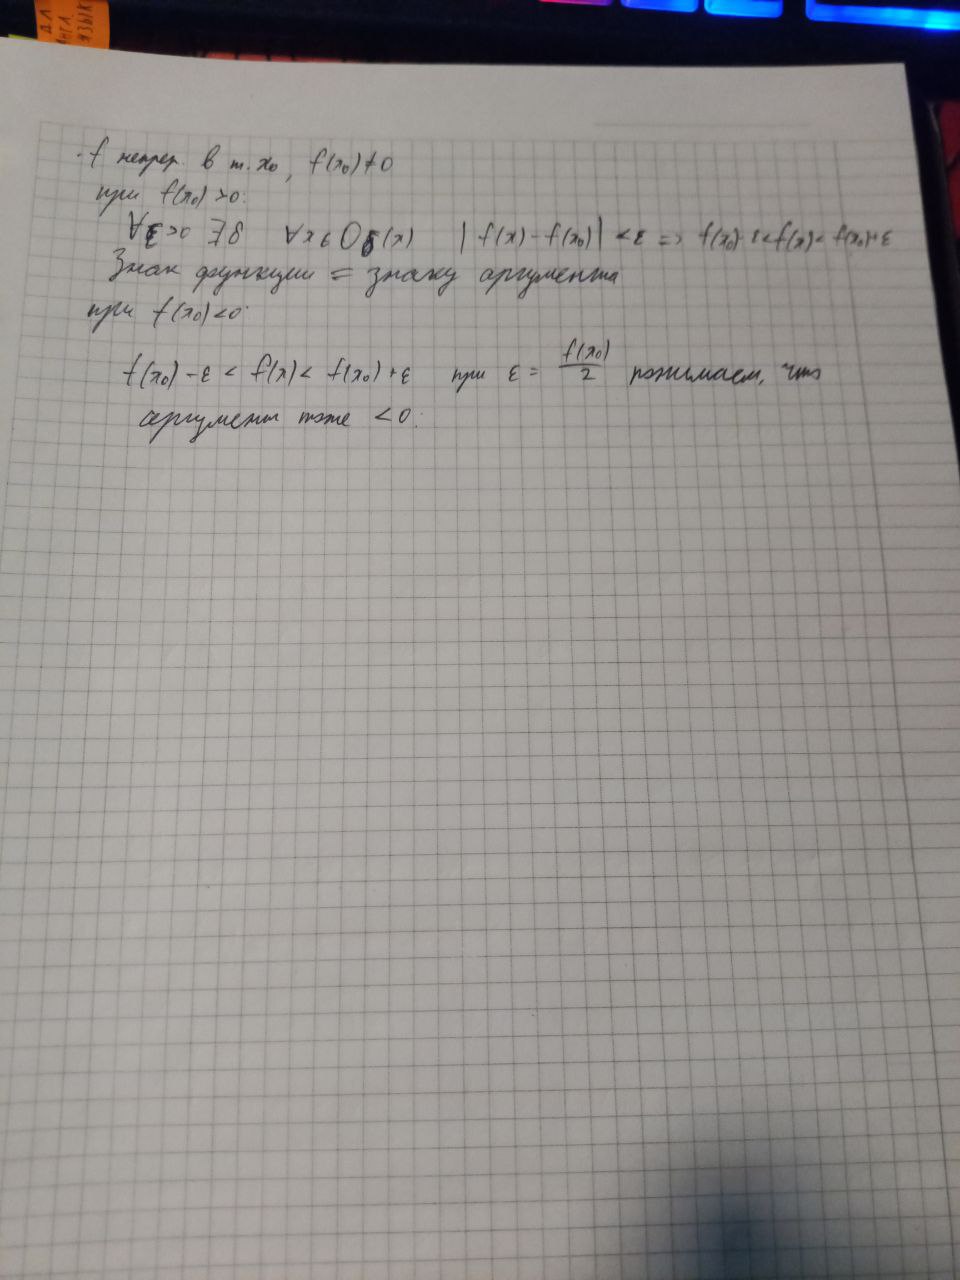 ДЛ
АНГЛ.
ЯЗЫК
· f непрер. в т. x₀, f(x₀)≠0
при f(x₀)>0:
∀ε>0 ∃δ ∀x∈Oδ(x) |f(x)-f(x₀)|<ε => f(x₀)-ε<f(x)<f(x₀)+ε
Знак функции = знаку аргумента
при f(x₀)<0:
f(x₀)-ε < f(x) < f(x₀)+ε при ε = f(x₀)/2 что
аргумент тоже <0.